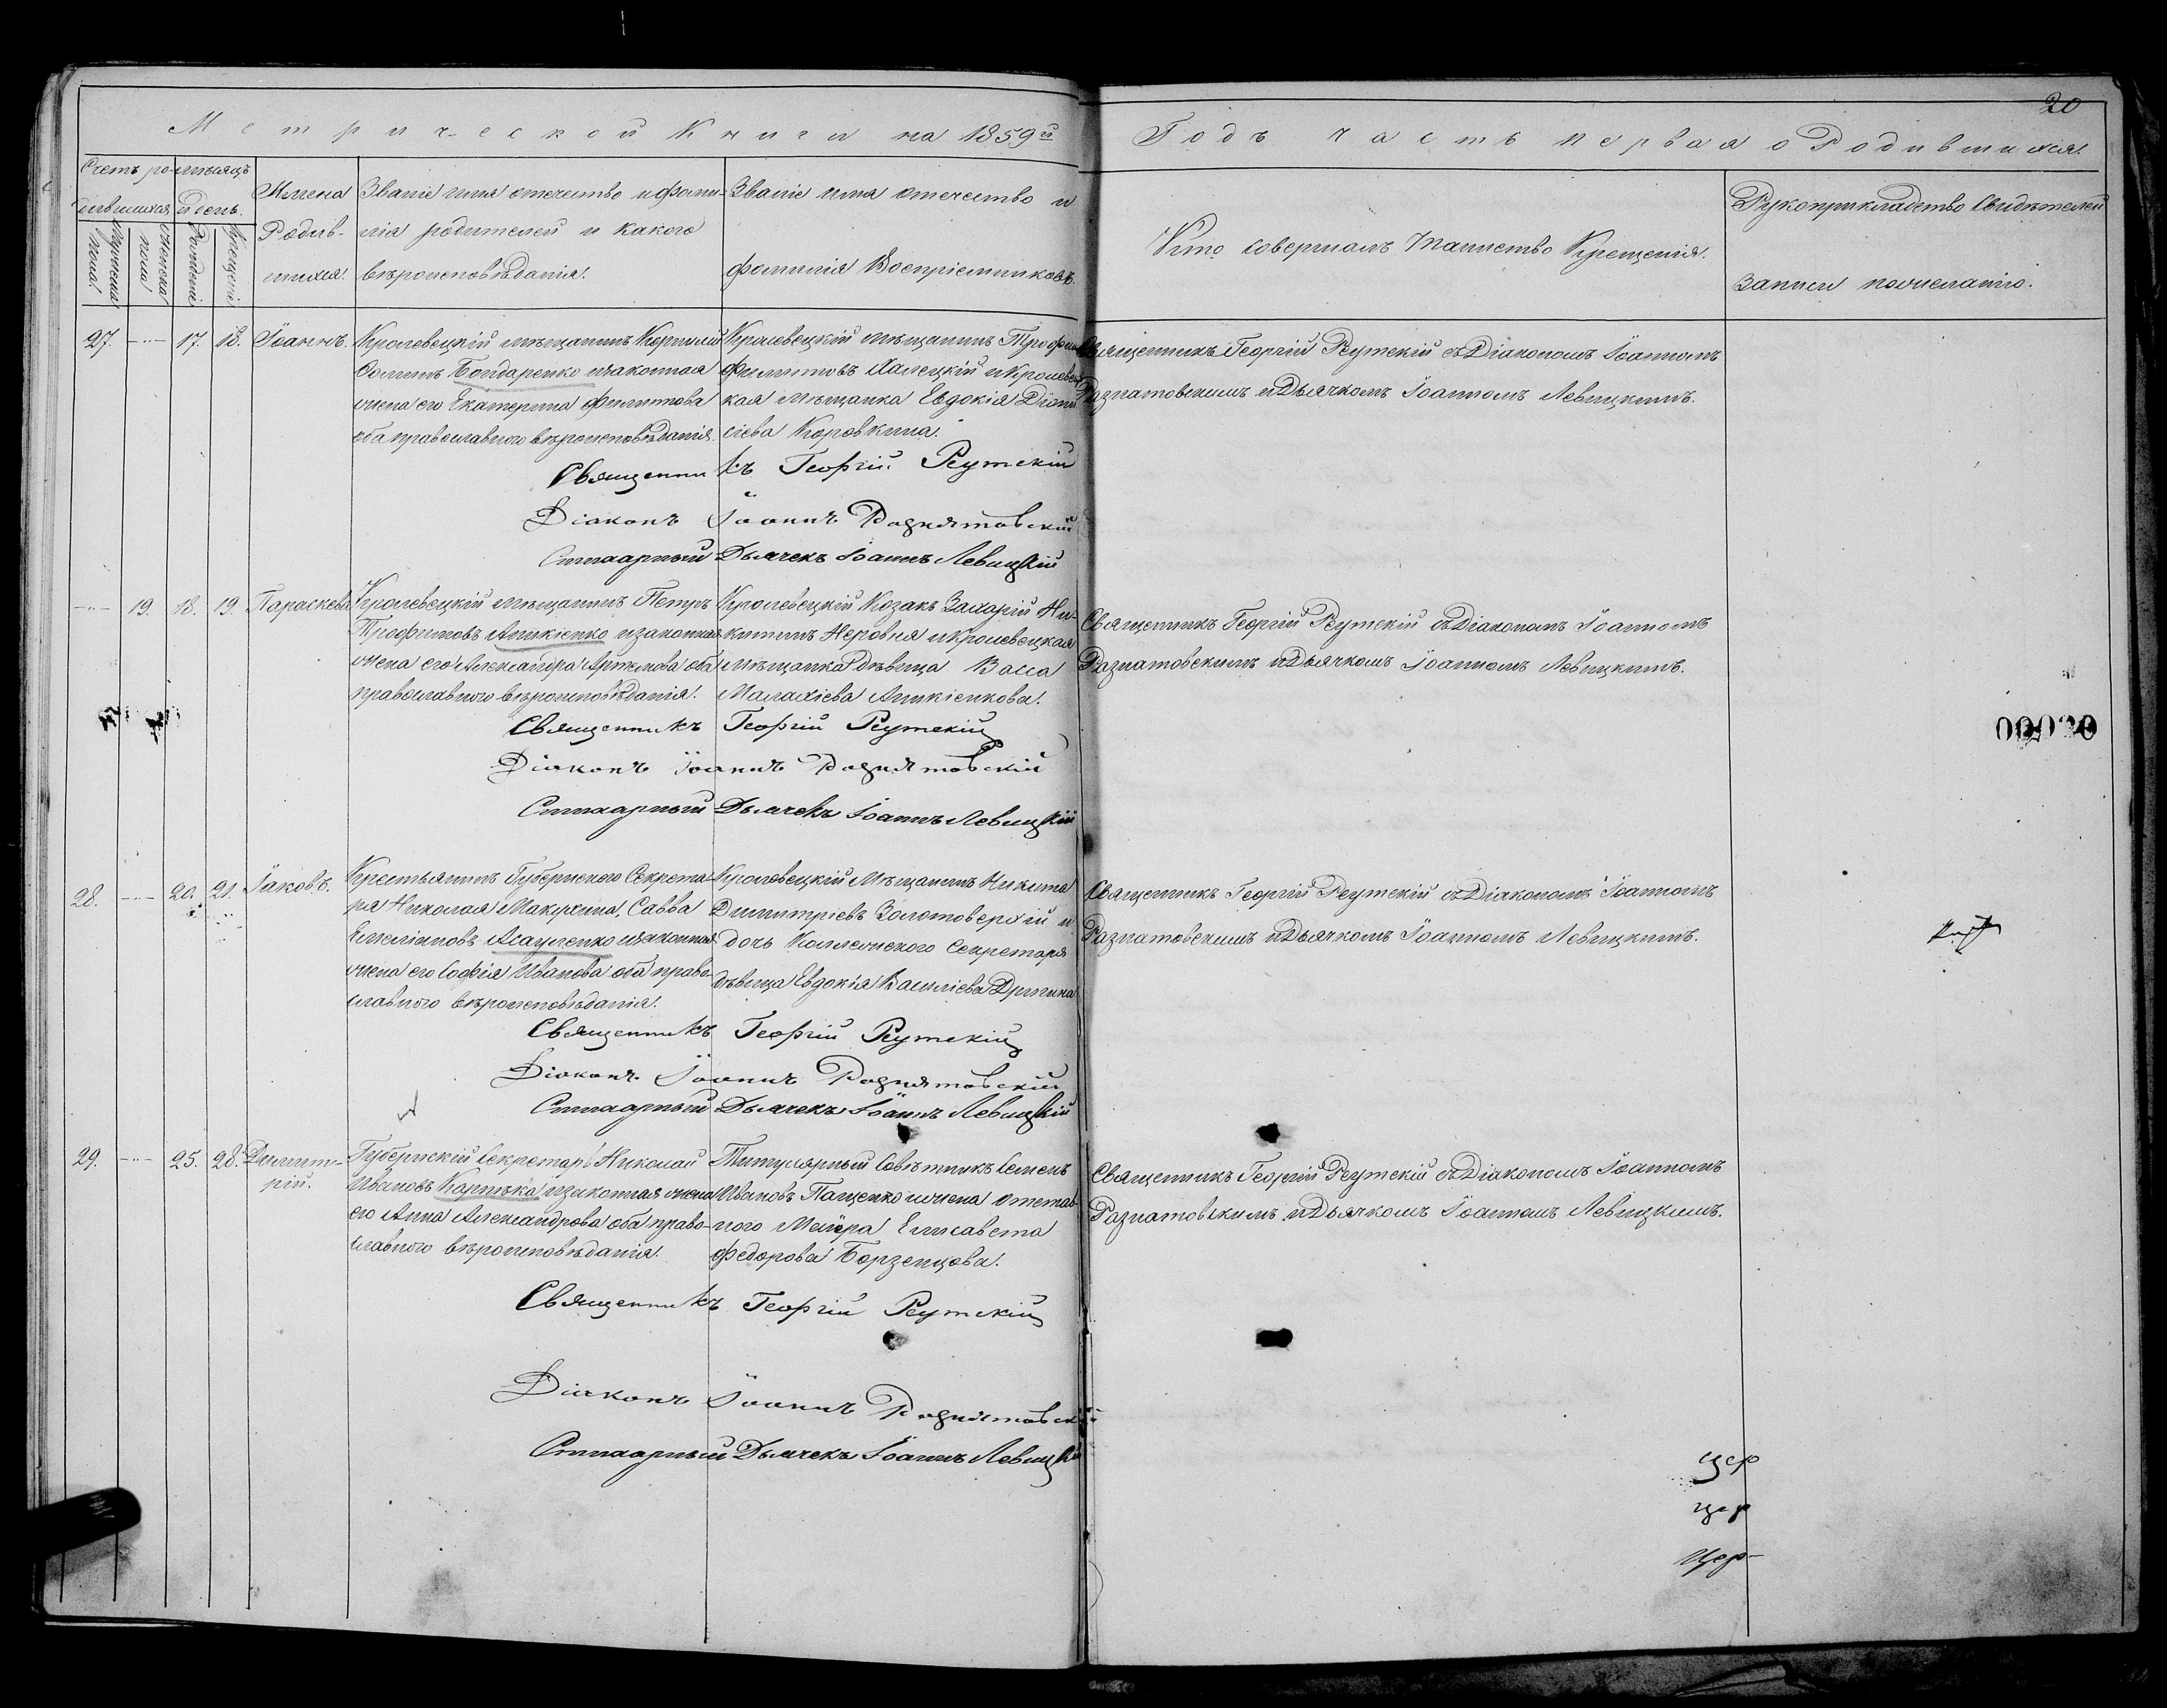 20
Метрической Книги на 1859й
Годъ часть первая о Родившихся.
Счетъ ро- мѣсяцъ
дившихся и день.
Мужеска пола
Женска пола
Рожденія
Крещенія
Имена
Родив-
шихся.
Званіе имя отечество и фами-
лія родителей и какого
вѣроисповѣданія.
Званіе имя отечество и
фамилія Воспріемниковъ.
Кто совершалъ Таинство Крещенія.
Рукоприкладство Свидѣтелей
записи по желанію.
27. 17. 18. Іоаннъ.
Кролевецкій мѣщанинъ Корнилій
Бондаренко и законная
жена его Екатерина Филиппова
оба православного вѣроисповѣданія.
Кролевецкій мѣщанинъ Трофимъ
Филиповъ Халецкій и Кролевец
кая мѣщанка Евдокія Діони
сіева Коровкина.
Священникъ Георгій Реутскій съ Діакономъ Іоанномъ
Разнатовскимъ и Дьячкомъ Іоанномъ Левицкимъ.
Священникъ Георгій Реутскій
Діаконъ Іоаннъ Рознятовскій
Стихарный Дьячекъ Іоаннъ Левицкій
19. 18. 19. Параскева
Кролевецкій мѣщанинъ Петръ
Трофимовъ Аникіенко и законная
жена его Александра Артемова оба
православного вѣроисповѣданія.
Кролевецкій Козакъ Захарій Ни-
китинъ Неровня и Кролевецкая
мѣщанка дѣвица Васса
Малахіева Аникіенкова.
Священникъ Георгій Реутскій съ Діакономъ Іоанномъ
Разнатовскимъ и Дьячкомъ Іоанномъ Левицкимъ.
Священникъ Георгій Реутскій
Діаконъ Іоаннъ Рознятовскій
Стихарный Дьячекъ Іоаннъ Левицкій
28. 20. 21. Іаковъ.
Крестьянинъ Губернского Секрета
ря Николая Макухина, Савва
Емеліановъ Асауленко и законная
жена его Софія Иванова оба право
славного вѣроисповѣданія.
Кролевецкій Мѣщанинъ Никита
Димитріевъ Золотоверхій и
дочь Коллежского Секретаря
дѣвица Евдокія Василіева
Священникъ Георгій Реутскій съ Діакономъ Іоанномъ
Разнатовскимъ и Дьячкомъ Іоанномъ Левицкимъ.
Священникъ Георгій Реутскій
Діаконъ Іоаннъ Рознятовскій
Стихарный Дьячекъ Іоаннъ Левицкій
29. 25. 28. Димит-
рій.
Губернскій Секретарь Николай
Ивановъ Картыка и законная жена
его Анна Александрова оба право-
славного вѣроисповѣданія.
Титулярный Совѣтникъ Семенъ
Ивановъ Пащенко и жена отстав
ного Маіора Елисавета
Федорова Борзенцова.
Священникъ Георгій Реутскій съ Діакономъ Іоанномъ
Разнатовскимъ и Дьячкомъ Іоанномъ Левицкимъ.
Священникъ Георгій Реутскій
Діаконъ Іоаннъ Рознятовскій
Стихарный Дьячекъ Іоаннъ Левицкій